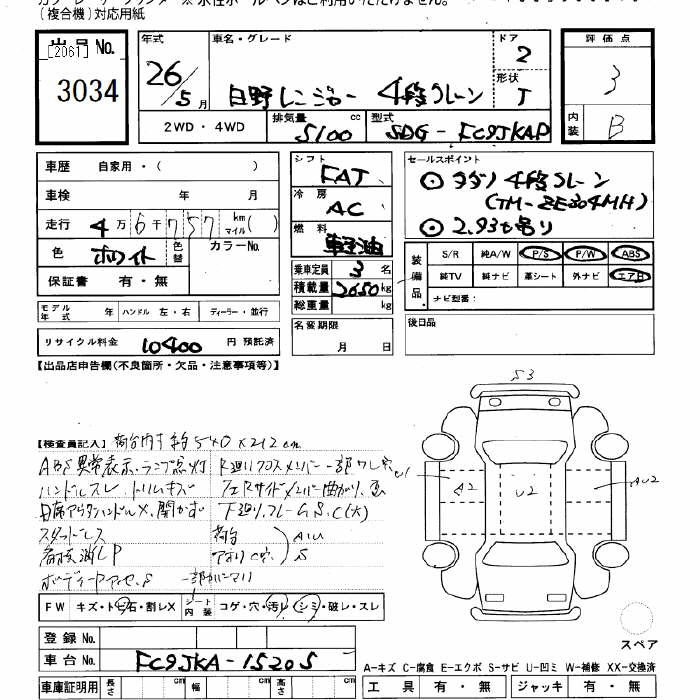 (複合機)対応用紙
出品No.
[2061]
3034
年式 車名・グレード ドア
26/5月 日野レンジャー 4段クレーン 2
形状 T
評価点
3
内装 B
2WD・4WD 排気量 5100 cc 型式 SDG-FC9JKAP
車歴 自家用・( )
車検 年 月
走行 4万6千757 km マイル( )
色 ホワイト 色替 カラーNo.
保証書 有・無
モデル年式 年 ハンドル 左・右 ディーラー・並行
リサイクル料金 10400 円 預託済
シフト FAT
冷房 AC
燃料 軽油
乗車定員 3 名
積載量 2650 kg
総重量 kg
名変期限
月 日
セールスポイント
◎ タダノ4段クレーン
(TM-ZE304MH)
◎ 2.93t吊り
装備品 S/R 純A/W P/S P/W ABS
純TV 純ナビ 革シート 外ナビ エアB
ナビ型番:
後日品
【出品店申告欄(不良箇所・欠品・注意事項等)】
【検査員記入】 荷台内寸 約540×212cm
ABS異常表示、ランプ点灯
ハンドルスレ、トリムキズ
スタッドレス
荷台
下廻り、フレームS、C(大)
AU
S
FW キズ・トビ石・割レX シート内装 コゲ・穴・汚レ・シミ・破レ・スレ
登録No.
車台No. FC9JKA-15205
車庫証明用 長さ cm 幅 cm 高さ cm
S3
U1 A2 U2 AU2
スペア
A-キズ C-腐食 E-エクボ S-サビ U-凹ミ W-補修 XX-交換済
工具 有・無 ジャッキ 有・無